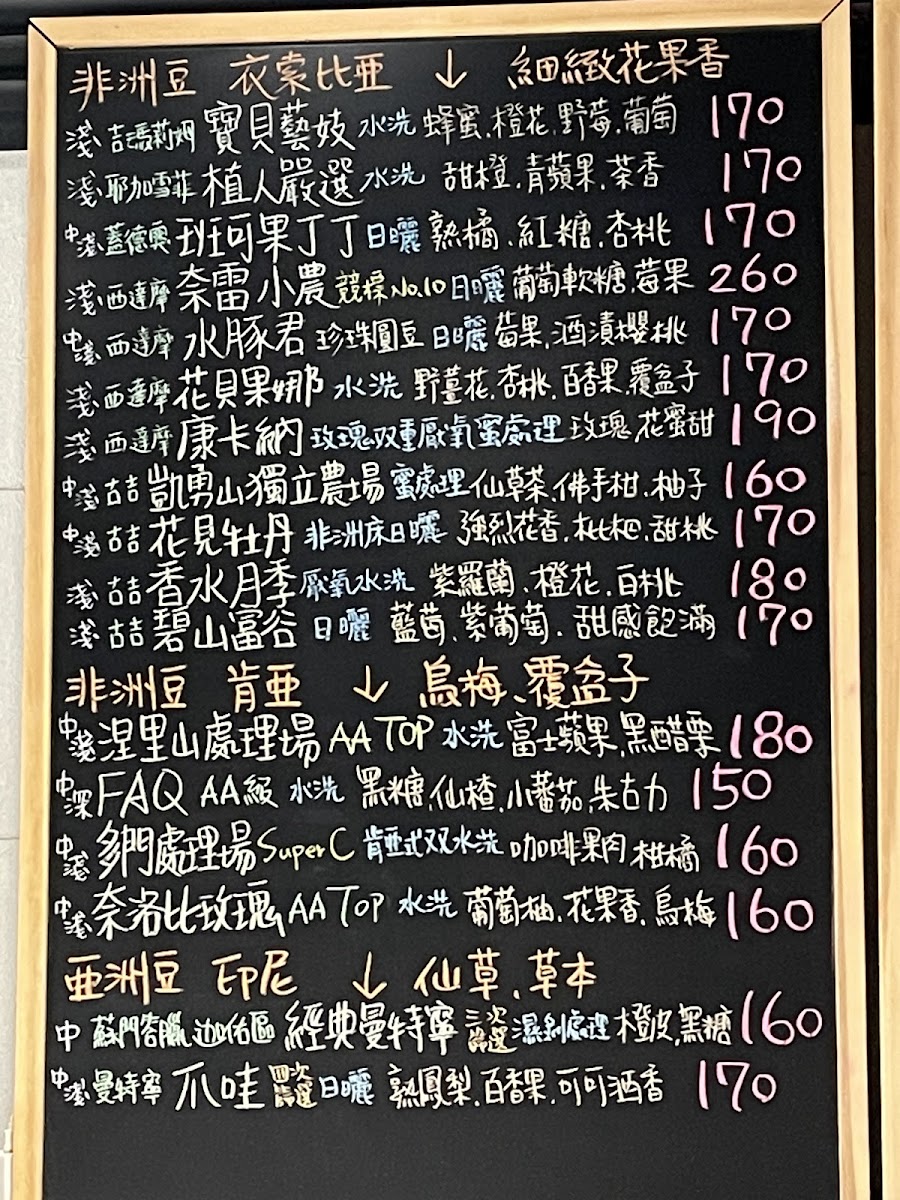 非洲豆 衣索比亞 ↓ 細緻花果香
淺 吉瑪莉姆 寶貝藝妓 水洗 蜂蜜.橙花.野莓.葡萄 170
淺 耶加雪菲 植人嚴選 水洗 甜橙.青蘋果.茶香 170
中淺 蓋德奧 班可果丁丁 日曬 熟橘、紅糖.杏桃 170
淺 西達摩 奈雷小農 競標No.10 日曬 葡萄軟糖.莓果 260
中淺 西達摩 水豚君 珍珠圓豆 日曬 莓果.酒漬櫻桃 170
淺 西達摩 花貝果娜 水洗 野薑花.杏桃.百香果.覆盆子 170
淺 西達摩 康卡納 玫瑰双重厭氧蜜處理 玫瑰.花蜜甜 190
中淺 古吉 凱勇山獨立農場 蜜處理 仙草茶.佛手柑.柚子 160
中淺 古吉 花見牡丹 非洲床日曬 強烈花香.枇杷.甜桃 170
淺 古吉 香水月季 厭氧水洗 紫羅蘭、橙花.白桃 180
淺 古吉 碧山富谷 日曬 藍莓、紫葡萄.甜感飽滿 170
非洲豆 肯亞 ↓ 烏梅、覆盆子
中淺 涅里山處理場 AA TOP 水洗 富士蘋果.黑醋栗 180
中深 FAQ AA級 水洗 黑糖.仙楂.小蕃茄.朱古力 150
中淺 多門處理場 Super C 肯亞式双水洗 咖啡果肉 柑橘 160
中淺 奈洛比玫瑰 AA TOP 水洗 葡萄柚.花果香.烏梅 160
亞洲豆 印尼 ↓ 仙草.草本
中 蘇門答臘 迦佑區 經典曼特寧 三次篩選 濕剝處理 橙皮.黑糖 160
中淺 曼特寧 爪哇 四次篩選 日曬 熟鳳梨.百香果.可可酒香 170